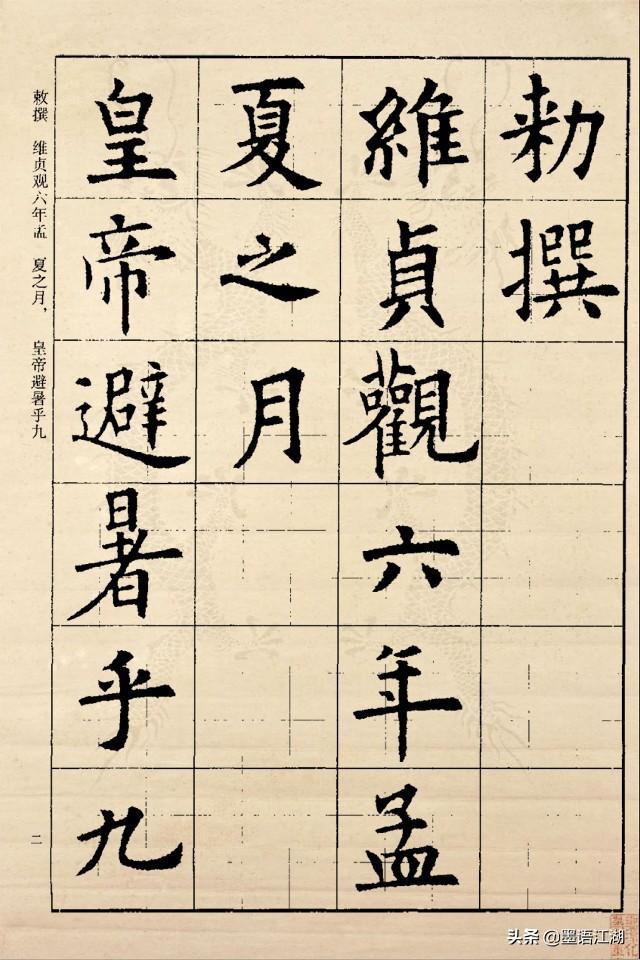 勅撰
維貞觀六年孟
夏之月
皇帝避暑乎九
敕撰 维贞观六年孟 夏之月， 皇帝避暑乎九
二
头条 @墨语江湖